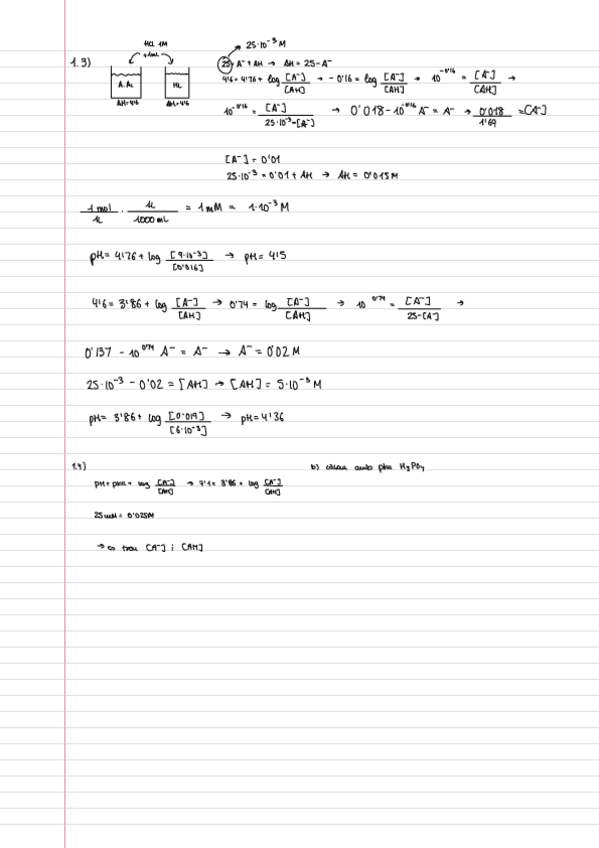 HCl 1M
+1mL
25·10⁻³M
1.3)
25 = A⁻ + AH → AH = 25 - A⁻
A.Ac HL
pH=4'6 pH=4'6
4'6 = 4'76 + log [A⁻]/[AH] → -0'16 = log [A⁻]/[AH] → 10^-0'16 = [A⁻]/[AH] →
10^-0'16 = [A⁻]/25·10⁻³-[A⁻] → 0'018 - 10^-0'16 A⁻ = A⁻ → 0'018/1'69 = [A⁻]
[A⁻] = 0'01
25·10⁻³ = 0'01 + AH → AH = 0'015M
1 mol/1L · 1L/1000 mL = 1 mM = 1·10⁻³ M
pH = 4'76 + log [9·10⁻³]/[0'016] → pH = 4'5
4'6 = 3'86 + log [A⁻]/[AH] → 0'74 = log [A⁻]/[AH] → 10^0'74 = [A⁻]/25-[A⁻] →
0'137 - 10^0'74 A⁻ = A⁻ → A⁻ = 0'02 M
25·10⁻³ - 0'02 = [AH] → [AH] = 5·10⁻³ M
pH = 3'86 + log [0'019]/[6·10⁻³] → pH = 4'36
1.4)
b) H₃PO₄
pH = pKa + log [A⁻]/[AH] → 7'1 = 3'86 + log [A⁻]/[AH]
25 mM = 0'025M
→ es treu [A⁻] i [AH]